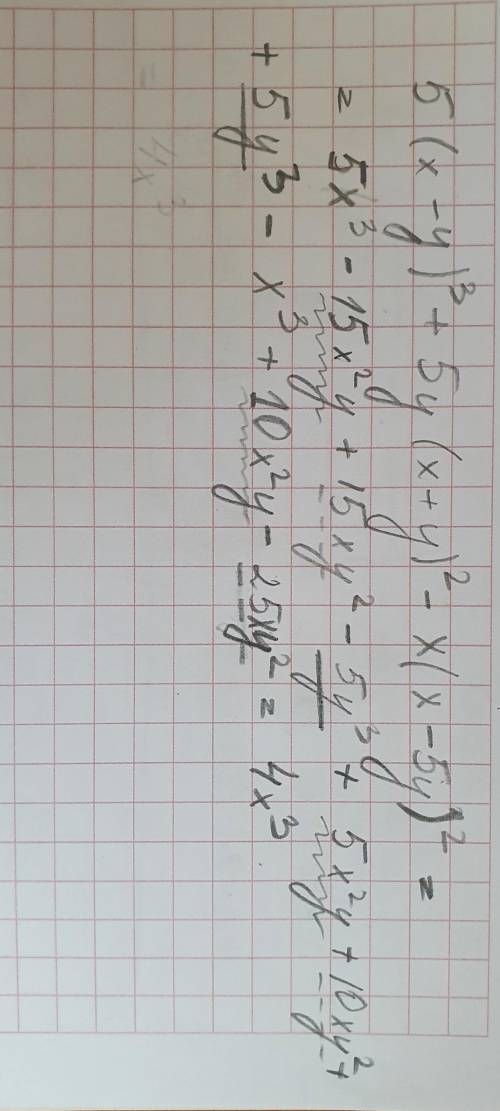 5(x-y)³+5y(x+y)²-x(x-5y)²=
=5x³-15x²y+15xy²-5y³+5x²y+10xy²+
+5y³-x³+10x²y-25xy²=4x³
= 4x³